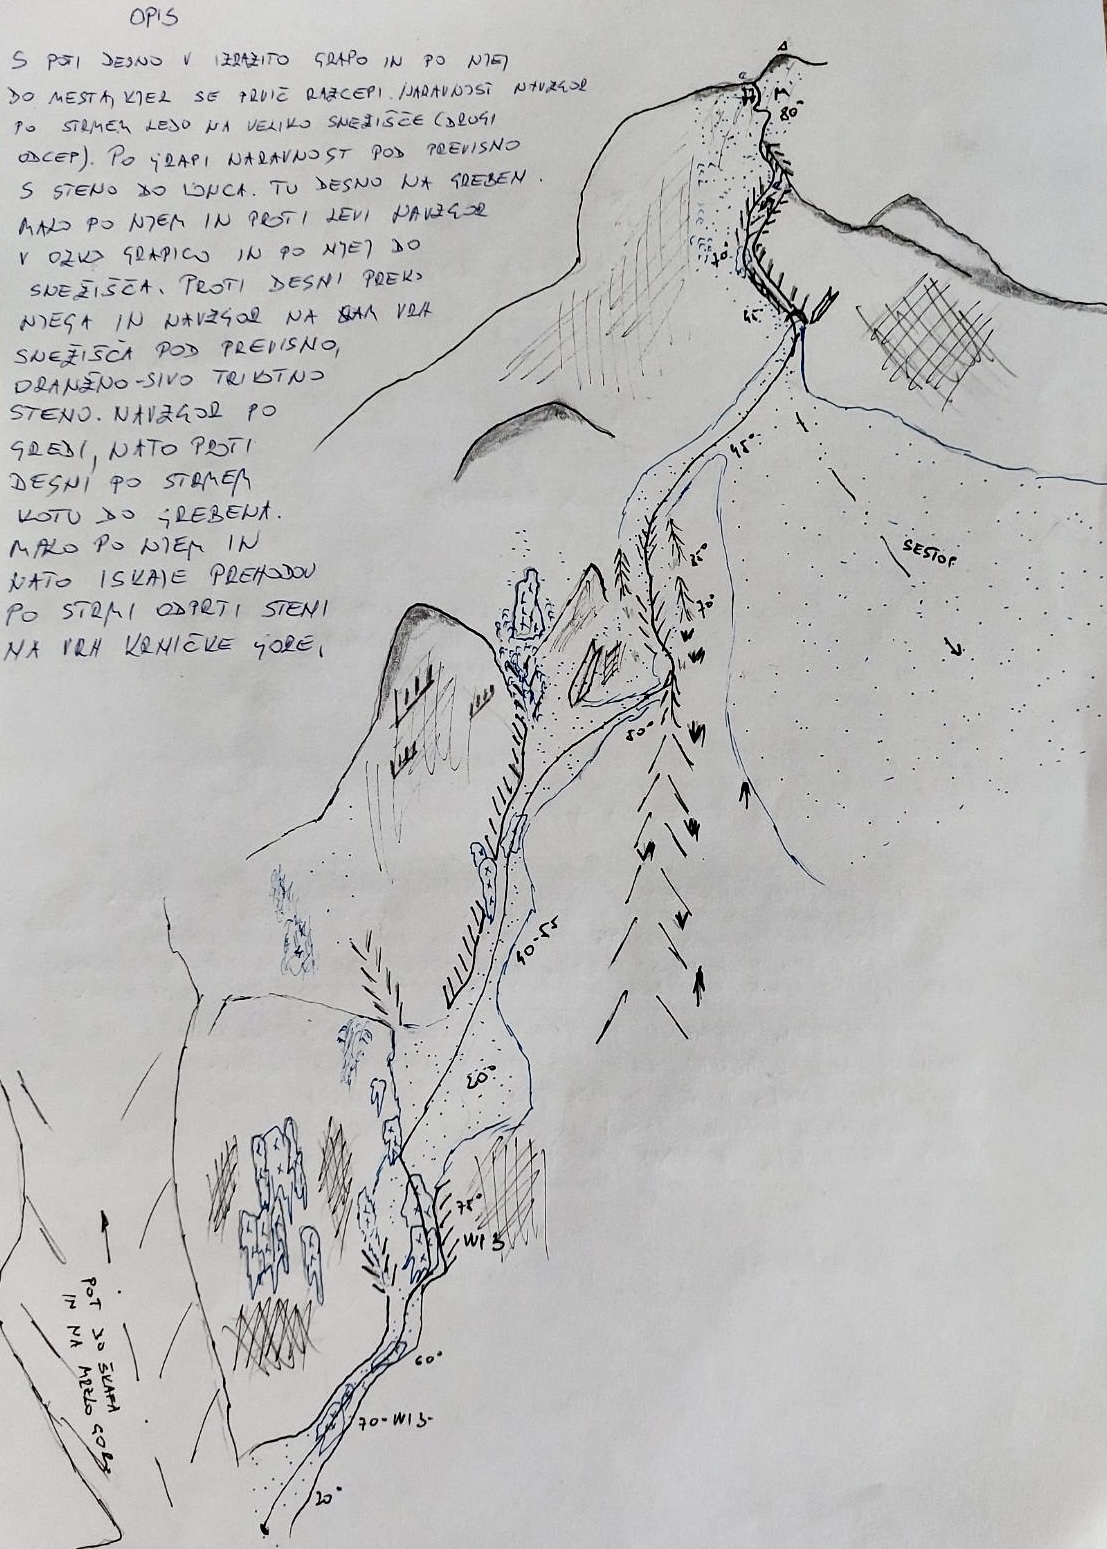 OPIS
S POTI DESNO V IZRAZITO GRAPO IN PO NJEJ
DO MESTA, KJER SE PRVIČ RAZCEPI. NARAVNOST NAVZGOR
PO STRMEM LEDU NA VELIKO SNEŽIŠČE (DRUGI
ODCEP). PO GRAPI NARAVNOST POD PREVISNO
S STENO DO LONCA. TU DESNO NA GREBEN.
MALO PO NJEM IN PROTI LEVI NAVZGOR
V OZKO GRAPICO IN PO NJEJ DO
SNEŽIŠČA. PROTI DESNI PREKO
NJEGA IN NAVZGOR NA VRH
SNEŽIŠČA POD PREVISNO,
ORANŽNO-SIVO TRIKOTNO
STENO. NAVZGOR PO
GREDI, NATO PROTI
DESNI PO STRMEM
KOTU DO GREBENA.
MALO PO NJEM IN
NATO ISKAJE PREHODOV
PO STRMI ODPRTI STENI
NA VRH KRNIČKE GORE,
M
80°
70°
45°
45°
SESTOP
85°
70°
50°
40-55
20°
75°
WI 3
60°
70-WI3-
20°
POT DO ŠKAFA
IN NA MRZLO GORO